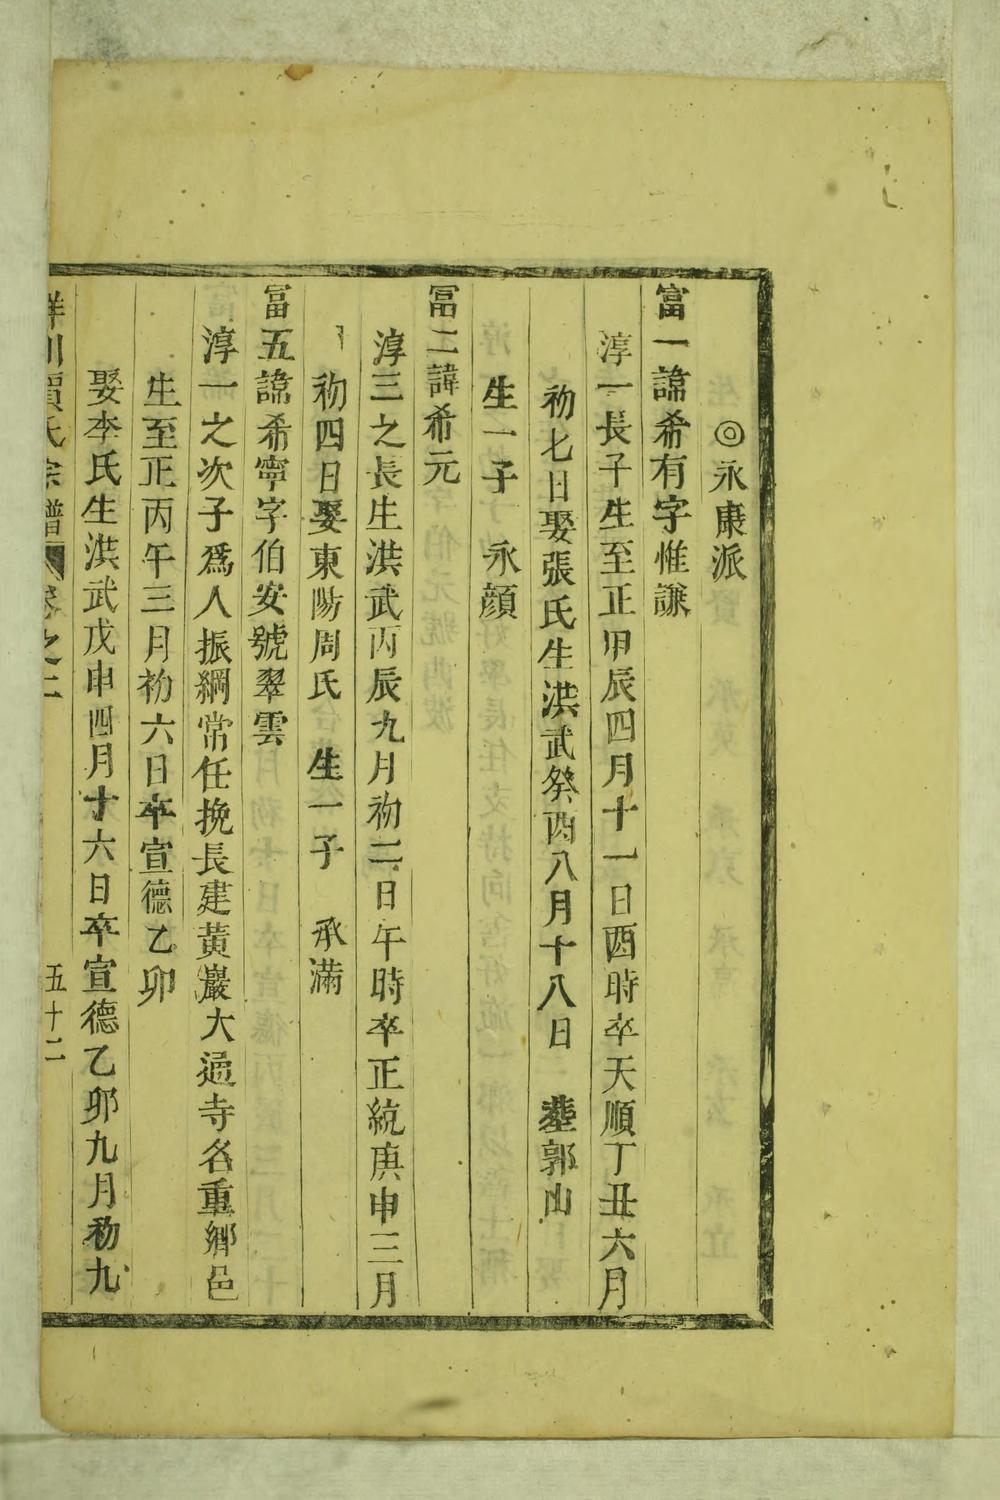 ◎永康派
富一諱希有字惟謙
淳一長子生至正甲辰四月十一日酉時卒天順丁丑六月
初七日娶張氏生洪武癸酉八月十八日 塟郭山
生一子 永顔
冨二諱希元
淳三之長生洪武丙辰九月初二日午時卒正統庚申三月
初四日娶東陽周氏 生一子 承滿
富五諱希寧字伯安號翠雲
淳一之次子爲人振綱常任挽長建黃巖大過寺名重鄉邑
生至正丙午三月初六日卒宣德乙卯
娶李氏生洪武戊申四月十六日卒宣德乙卯九月初九
川賈氏宗譜 卷之二 五十二